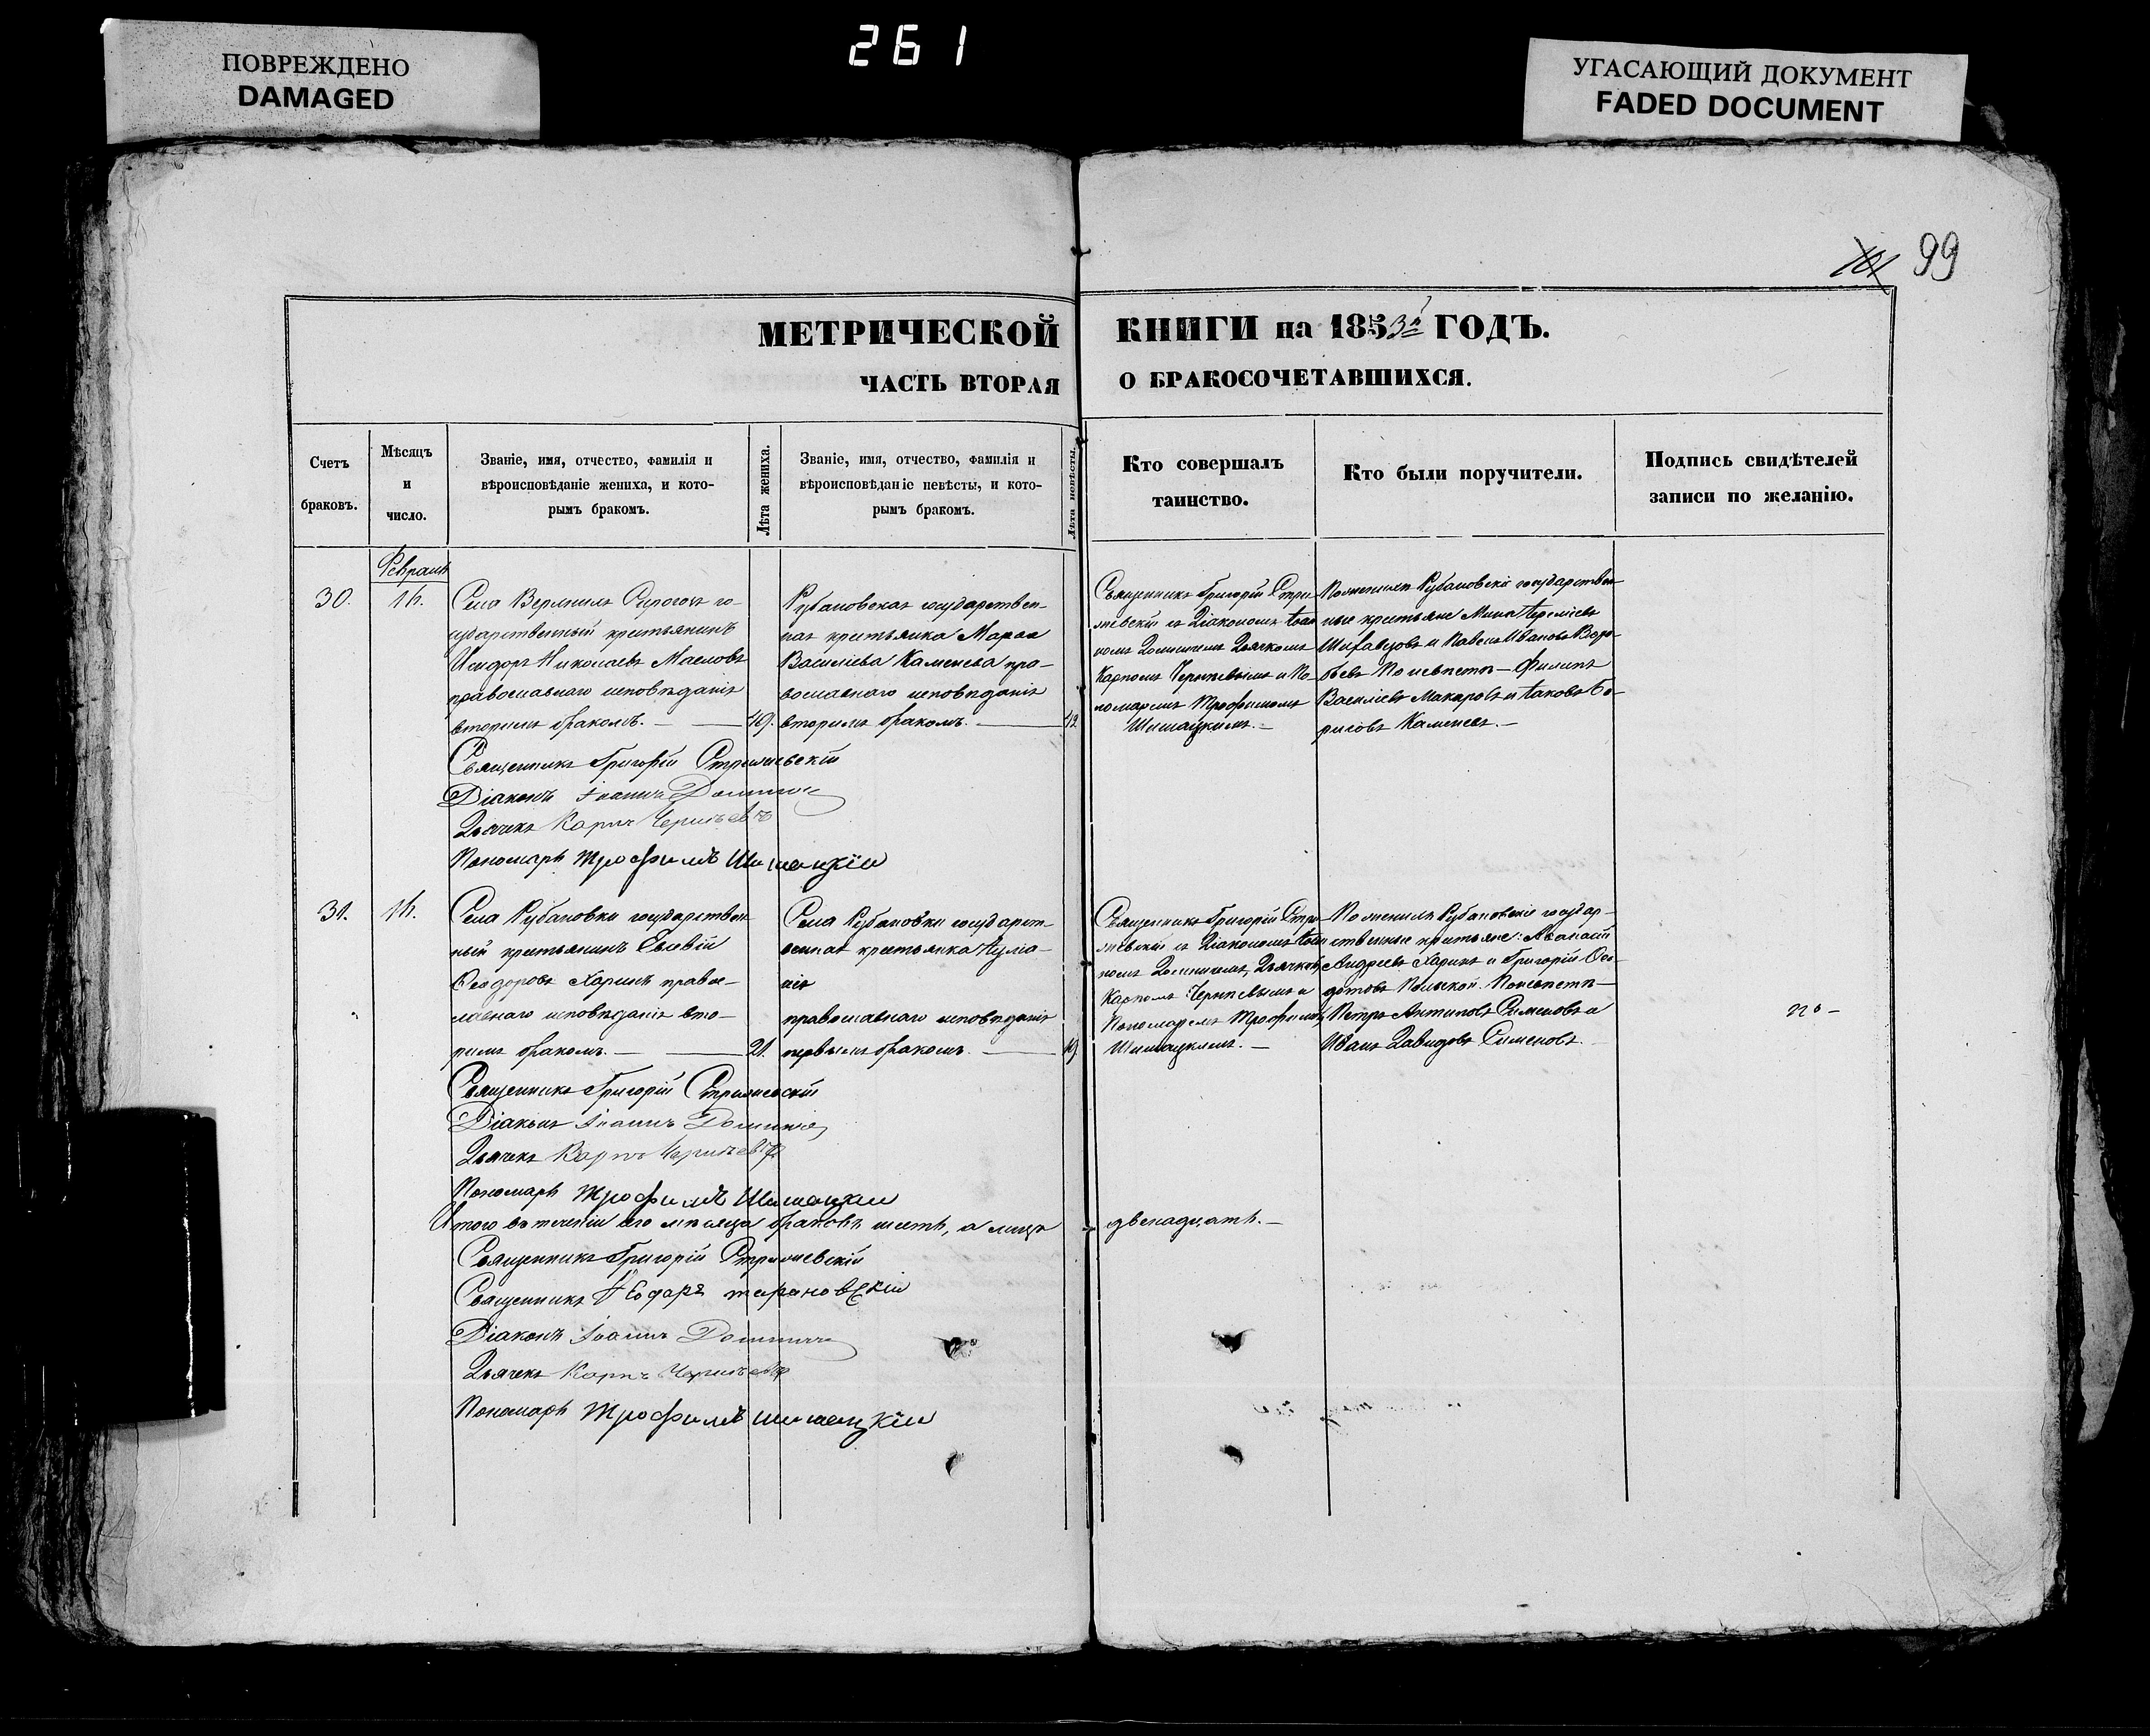 ПОВРЕЖДЕНО
DAMAGED
261
УГАСАЮЩИЙ ДОКУМЕНТ
FADED DOCUMENT
101 99
МЕТРИЧЕСКОЙ КНИГИ на 1853й ГОДЪ.
ЧАСТЬ ВТОРАЯ О БРАКОСОЧЕТАВШИХСЯ.
Счетъ
браковъ.
Мѣсяцъ
и
число.
Званіе, имя, отчество, фамилія и
вѣроисповѣданіе жениха, и кото-
рымъ бракомъ.
Лѣта жениха.
Званіе, имя, отчество, фамилія и
вѣроисповѣданіе невѣсты, и кото-
рымъ бракомъ.
Лѣта невѣсты.
Кто совершалъ
таинство.
Кто были поручители.
Подпись свидѣтелей
записи по желанію.
Февраля
30.
Села Верхнихъ Сирогозъ го-
сударственный крестьянинъ
Исидоръ Николаевъ Масловъ
православнаго исповѣданія
вторымъ бракомъ. —
49.
Рубановская государствен-
ная крестьянка Марѳа
Василіева Каменева пра-
вославнаго исповѣданія
вторымъ бракомъ. —
42
Священникъ Григорій Стри-
жевскій съ Діакономъ Іоан-
номъ Дьячкомъ
Карпомъ и По-
номаремъ Трофимомъ
Шишацкимъ. —
По женихѣ Рубановскіе государствен-
ные крестьяне
и Павелъ Ивановъ Воро-
бьевъ По невѣстѣ — Филипъ
Василіевъ Макаровъ и Іаковъ Бо-
рисовъ Каменевъ. —
Священникъ Григорій Стрижевскій
Діаконъ Іоаннъ
Дьячекъ Карпъ
Пономарь Трофимъ Шишацкій
31.
Села Рубановки государствен-
ный крестьянинъ Евсевій
Ѳеодоровъ Харинъ право-
славнаго исповѣданія вто-
рымъ бракомъ. —
21.
Села Рубановки государст-
венная крестьянка Іуліа-
нія
православнаго исповѣданія
первымъ бракомъ. —
19
Священникъ Григорій Стри-
жевскій съ Діакономъ Іоан-
номъ Дьячкомъ
Карпомъ и
Пономаремъ Трофимомъ
Шишацкимъ. —
По женихѣ Рубановскіе государ-
ственные крестьяне: Аѳанасій
Андреевъ Харинъ и Григорій Ѳео-
дотовъ По невѣстѣ —
Петръ Антиповъ Сименовъ и
Иванъ Давидовъ Сименовъ.
Священникъ Григорій Стрижевскій
Діаконъ Іоаннъ
Дьячекъ Карпъ
Пономарь Трофимъ Шишацкій
Итого въ теченіи сего мѣсяца браковъ шесть, а лицъ двенадцать. —
Священникъ Григорій Стрижевскій
Священникъ Ѳеодоръ Тарановскій
Діаконъ Іоаннъ
Дьячекъ Карпъ
Пономарь Трофимъ Шишацкій